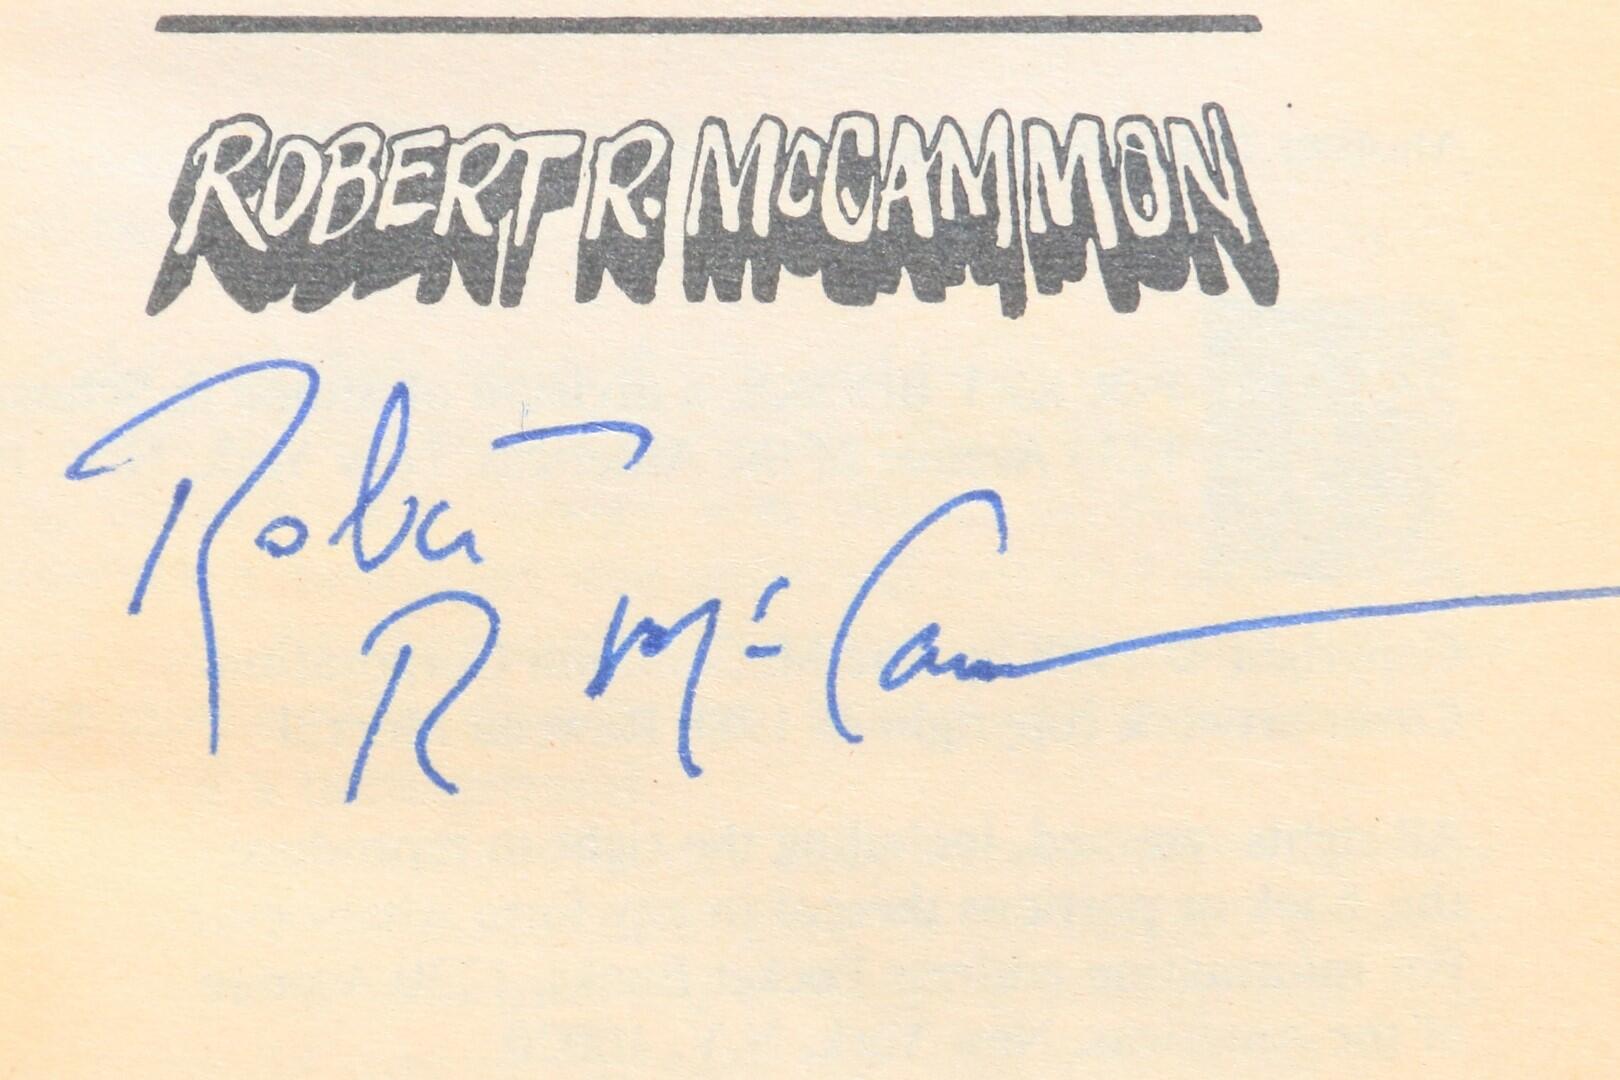 ROBERT R. MCCAMMON
Robert
R McCammon